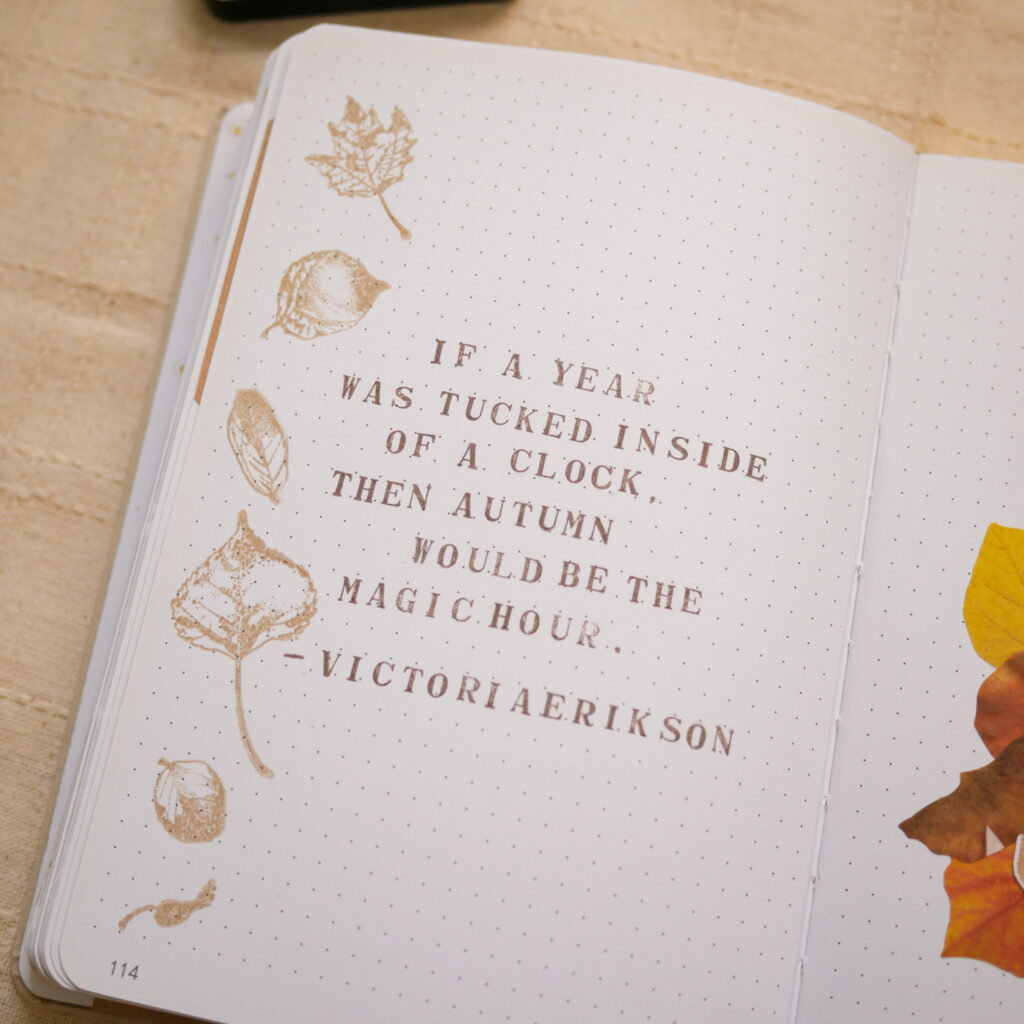 IF A YEAR
WAS TUCKED INSIDE
OF A CLOCK,
THEN AUTUMN
WOULD BE THE
MAGIC HOUR.
-VICTORIA ERIKSON
114